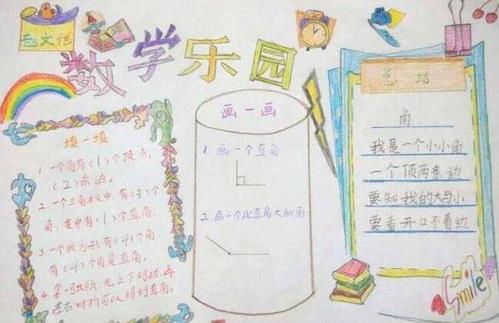 数学乐园
填一填
1.一个角有(1)个顶点,
(2)条边。
2.一个三角板中,有(3)个
角,其中有(1)个直角。
3.一个长方形有(4)个角
有(4)个角是直角。
4.拿一张纸,先上下对折,再
左右对折可以得到直角。
画一画
1.画一个直角
2.画一个比直角大的角
总结
角
我是一个小小角
一个顶两条边
要知我的大与小
要看开口不看边
Smile